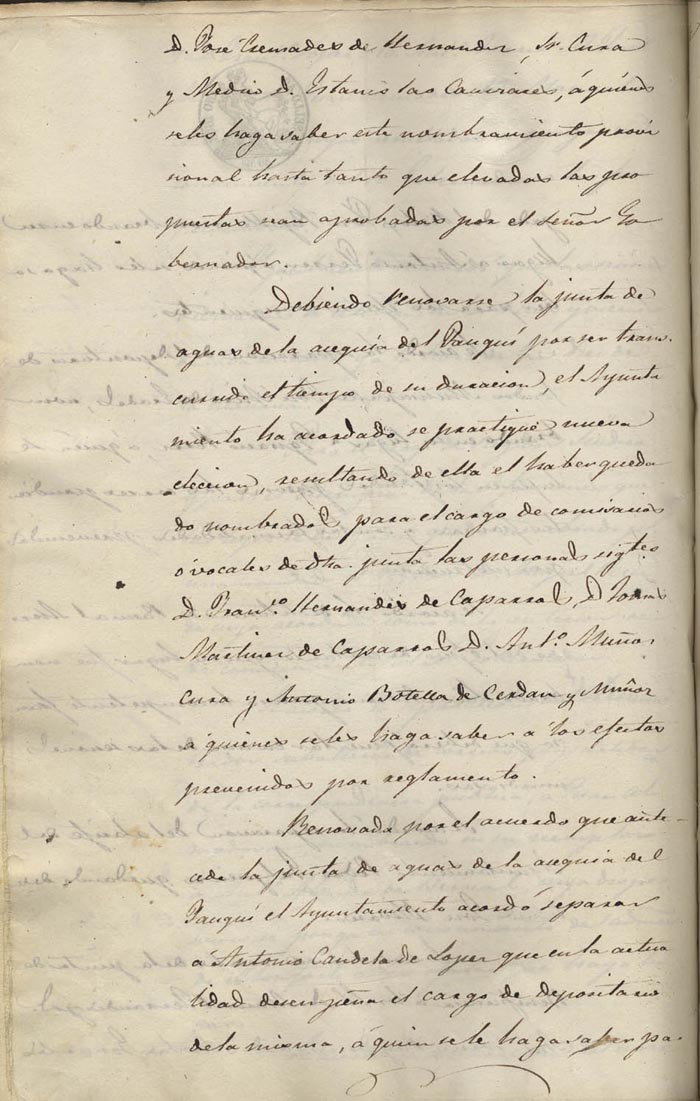 D. José Cremades de Hernandez, Sr. Cura
y Medico D. Estanislao Cañizares, á quienes
seles haga saber este nombramiento provi
sional hasta tanto que elevadas las pro
puestas sean aprobadas por el señor Go
bernador.
Debiendo renovarse la junta de
aguas de la acequia del Pauquí por ser trans
currido el tiempo de su duracion, el Ayunta
miento ha acordado se practique nueva
eleccion, resultando de ella el haber queda
do nombrados para el cargo de comisarios
ó vocales de dha. junta las personas sigtes
D. Franco. Hernandes de Caparros, D. Tomas
Martinez de Caparros, D. Anto. Muñoz
Cura y Antonio Botella de Cerdan y Muñoz
á quienes seles haga saber á los efectos
prevenidos por reglamento.
Renovada por el acuerdo que ante-
cede la junta de aguas de la acequia del
Pauquí el Ayuntamiento acordó separar
á Antonio Candela de Lopez que en la actua
lidad desempeña el cargo de depositario
de la misma, á quien sele haga saber pa